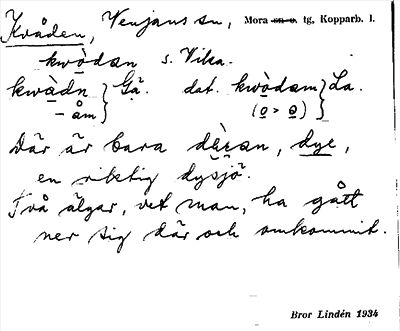 Kvåden, Venjans sn, Mora sn o. tg, Kopparb. l.
kwòdan s. Vika.
kwàdn } Gä. dat. kwòdam } La.
– åm (o > o)
Där är bara dèran, dye,
en riktig dysjö.
Två älgar, vet man, ha gått
ner sig där och omkommit.
Bror Lindén 1934